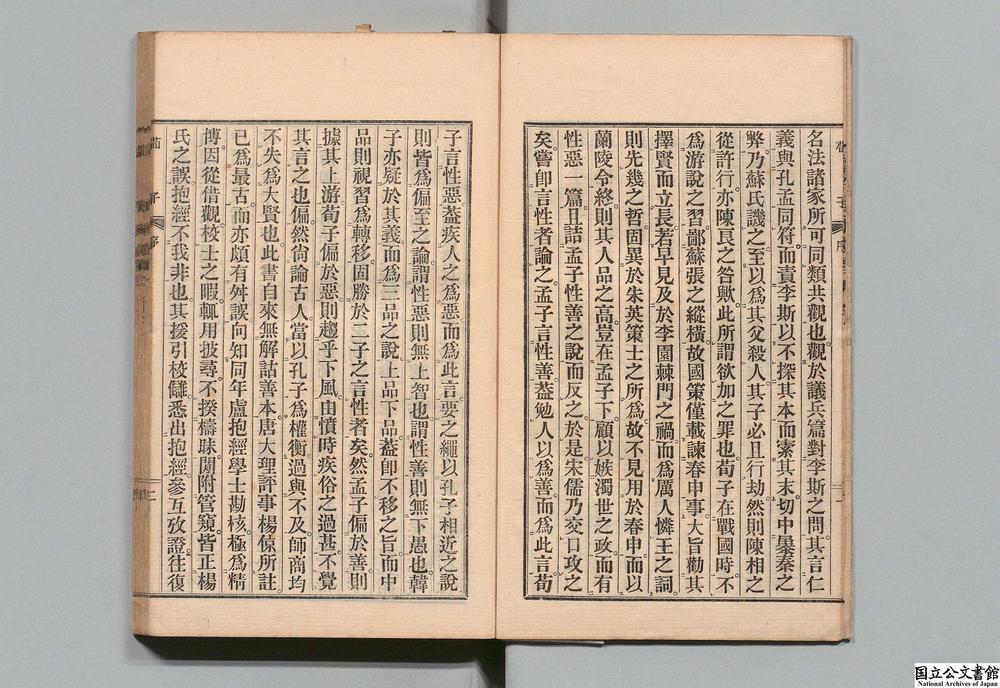 名法諸家所可同類共觀也觀於議兵篇對李斯之問其言仁
義與孔孟同符而責李斯以不探其本而索其末切中暴秦之
弊乃蘇氏譏之至以爲其父殺人其子必且行劫然則陳相之
從許行亦陳良之咎歟此所謂欲加之罪也荀子在戰國時不
爲游說之習鄙蘇張之縱橫故國策僅載諫春申事大旨勸其
擇賢而立長若早見及於李園棘門之禍而爲厲人憐王之詞
則先幾之哲固異於朱英策士之所爲故不見用於春申而以
蘭陵令終則其人品之高豈在孟子下顧以嫉濁世之政而有
性惡一篇且詰孟子性善之說而反之於是宋儒乃交口攻之
矣嘗卽言性者論之孟子言性善蓋勉人以爲善而爲此言荀
子言性惡蓋疾人之爲惡而爲此言要之繩以孔子相近之說
則皆爲偏至之論謂性惡則無上智也謂性善則無下愚也韓
子亦疑於其義而爲三品之說上品下品蓋卽不移之旨而中
品則視習爲轉移固勝於二子之言性者矣然孟子偏於善則
據其上游荀子偏於惡則趨乎下風由憤時疾俗之過甚不覺
其言之也偏然尙論古人當以孔子爲權衡過與不及師商均
不失爲大賢也此書自來無解詁善本唐大理評事楊倞所註
已爲最古而亦頗有舛誤向知同年盧抱經學士勘核極爲精
博因從借觀校士之暇輒用披尋不揆檮昧閒附管窺皆正楊
氏之誤抱經不我非也其援引校讎悉出抱經參互攷證往復
荀子 序
二
国立公文書館
National Archives of Japan